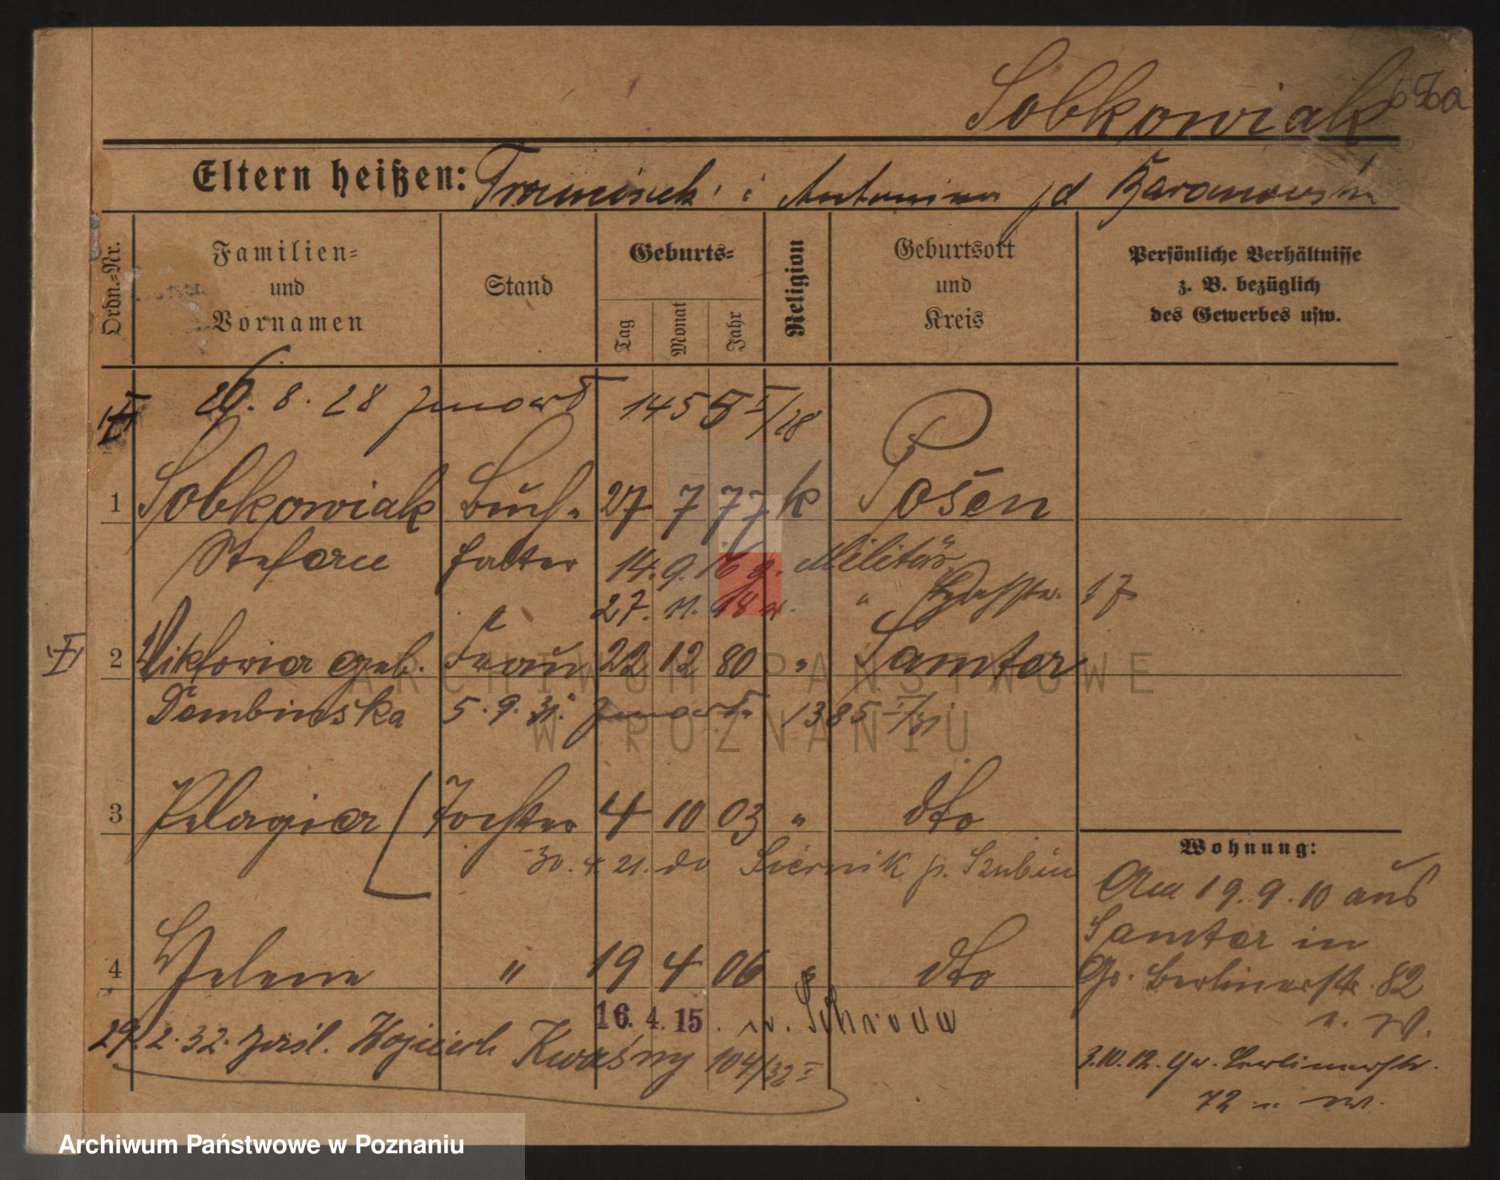 Sobkowiak
Eltern heißen: Franciszek i Antonina
Ordn.-Nr.
Familien- und Vornamen
Stand
Geburts-
Tag
Monat
Jahr
Religion
Geburtsort und Kreis
Persönliche Verhältnisse z. B. bezüglich des Gewerbes usw.
26. 8. 28 zmarł 1455 I/28
1 Sobkowiak Buch- 27 7 77 k Posen
Stefan halter 14. 9. 16 z. Militär
27. 11. 18 a. " 17
2 Wiktoria geb. Frau 22 12 80 " Samter
Dembinska 5. 9. 31. zmarła 1385 I/31
3 Pelagia Tochter 4 10 03 " dto
30. 4. 21. do Siernik p. Szubin
4 Helene " 19 4 06 " dto
16. 4. 15. n. Schroda
29. 2. 32. Wojciech Kwaśny 104/32 I
Wohnung:
Am 19. 9. 10 aus
Samter in
Gr. Berlinerstr. 82
n. W.
3.10.12. Gr. Berlinerstr.
72 n. W.
ARCHIWUM PAŃSTWOWE
W POZNANIU
Archiwum Państwowe w Poznaniu